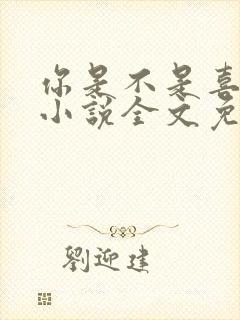 你是不是喜
小說全文免
劉迎建